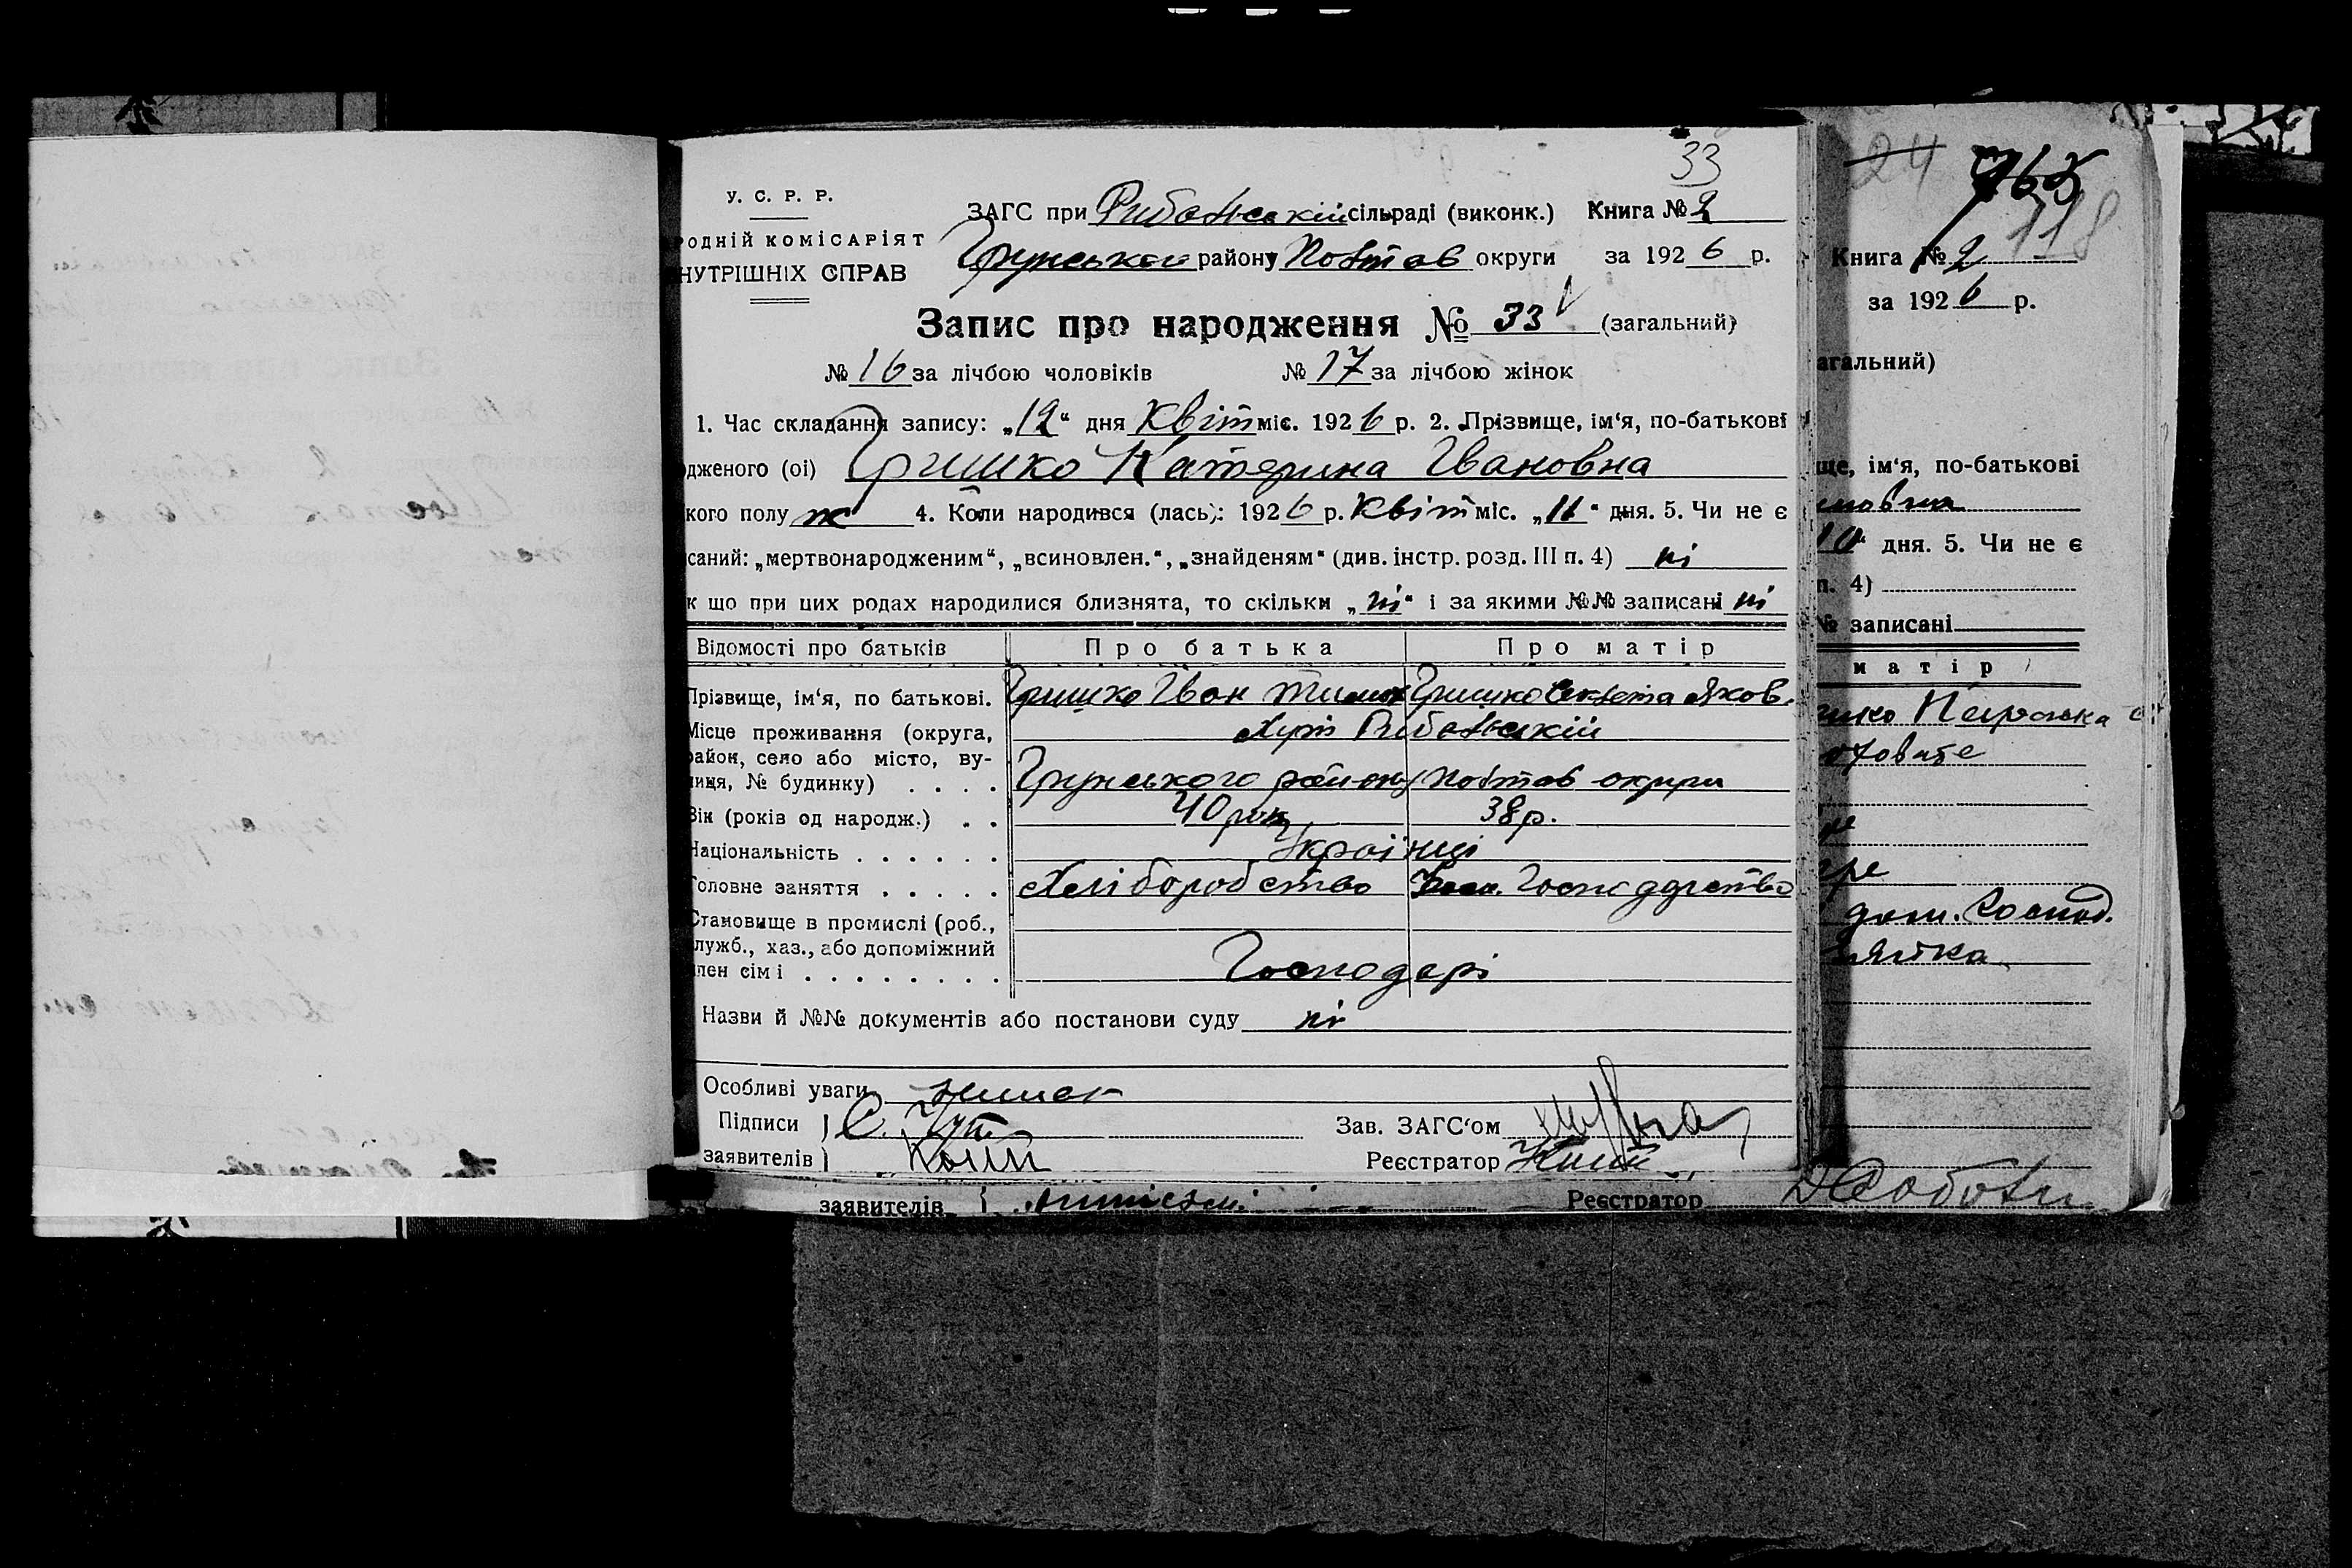 33
У. С. Р. Р.
ЗАГС при Рибальській сільраді (виконк.) Книга № 2
РОДНІЙ КОМІСАРІЯТ
НУТРІШНІХ СПРАВ
Грунського району Полтав округи за 1926 р.
Запис про народження № 33 (загальний)
№ 16 за лічбою чоловіків № 17 за лічбою жінок
1. Час складання запису: „12“ дня Квіт міс. 1926 р. 2. Прізвище, ім‘я, по-батькові
дженого (ої) Гришко Катерина Івановна
кого полу ж 4. Коли народився (лась): 1926 р. Квіт міс. „11“ дня. 5. Чи не є
саний: „мертвонародженим“, „всиновлен.“, „знайденям“ (див. інстр. розд. III п. 4) ні
к що при цих родах народилися близнята, то скільки „ні“ і за якими №№ записані ні
Відомості про батьків Про батька Про матір
Прізвище, ім‘я, по батькові. Гришко Іван Тимох Гришко Яков.
Місце проживання (округа, Хут Рибальській
район, село або місто, ву-
лиця, № будинку) . . . . Грунського району Полтав округи
Вік (років од народж.) . . 40 рок 38 р.
Національність . . . . . . Українці
Головне заняття . . . . . Хліборобство Господарство
Становище в промислі (роб.,
служб., хаз., або допоміжний
член сімі . . . . . . . . Господарі
Назви й №№ документів або постанови суду ні
Особливі уваги
Підписи
Зав. ЗАГС‘ом
заявителів
Реєстратор
заявителів
Реєстратор
24
118
Книга № 2
за 1926 р.
агальний)
ще, ім‘я, по-батькові
10“ дня. 5. Чи не є
п. 4)
№ записані
матір
дом. Господ.